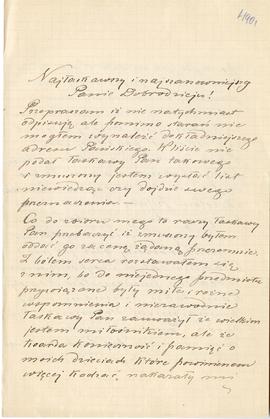 Najłaskawszy i najszanowniejszy
Panie Dobrodzieju!
Przepraszam iż nie natychmiast
odpisuję, ale pomimo starań nie
mogłem wynaleźć dokładniejszego
adresu Pańskiego. W liście nie
podał Łaskawy Pan takowego
i zmuszony jestem wysłać list
niewiedząc czy dojdzie swego
przeznaczenia. —
Co do zbioru mego to raczy Łaskawy
Pan przebaczyć iż zmuszony byłem
oddać go za cenę żądaną
Z bólem serca rozstawałem się
z nim, bo do niejednego przedmiotu
przywiązane były miłe i różne
wspomnienia i niezawodnie
Łaskawy Pan zauważył że wielkim
jestem miłośnikiem, ale że
twarda konieczność i pamięć o
moich dzieciach które powinienem
więcej kochać, nakazały mi